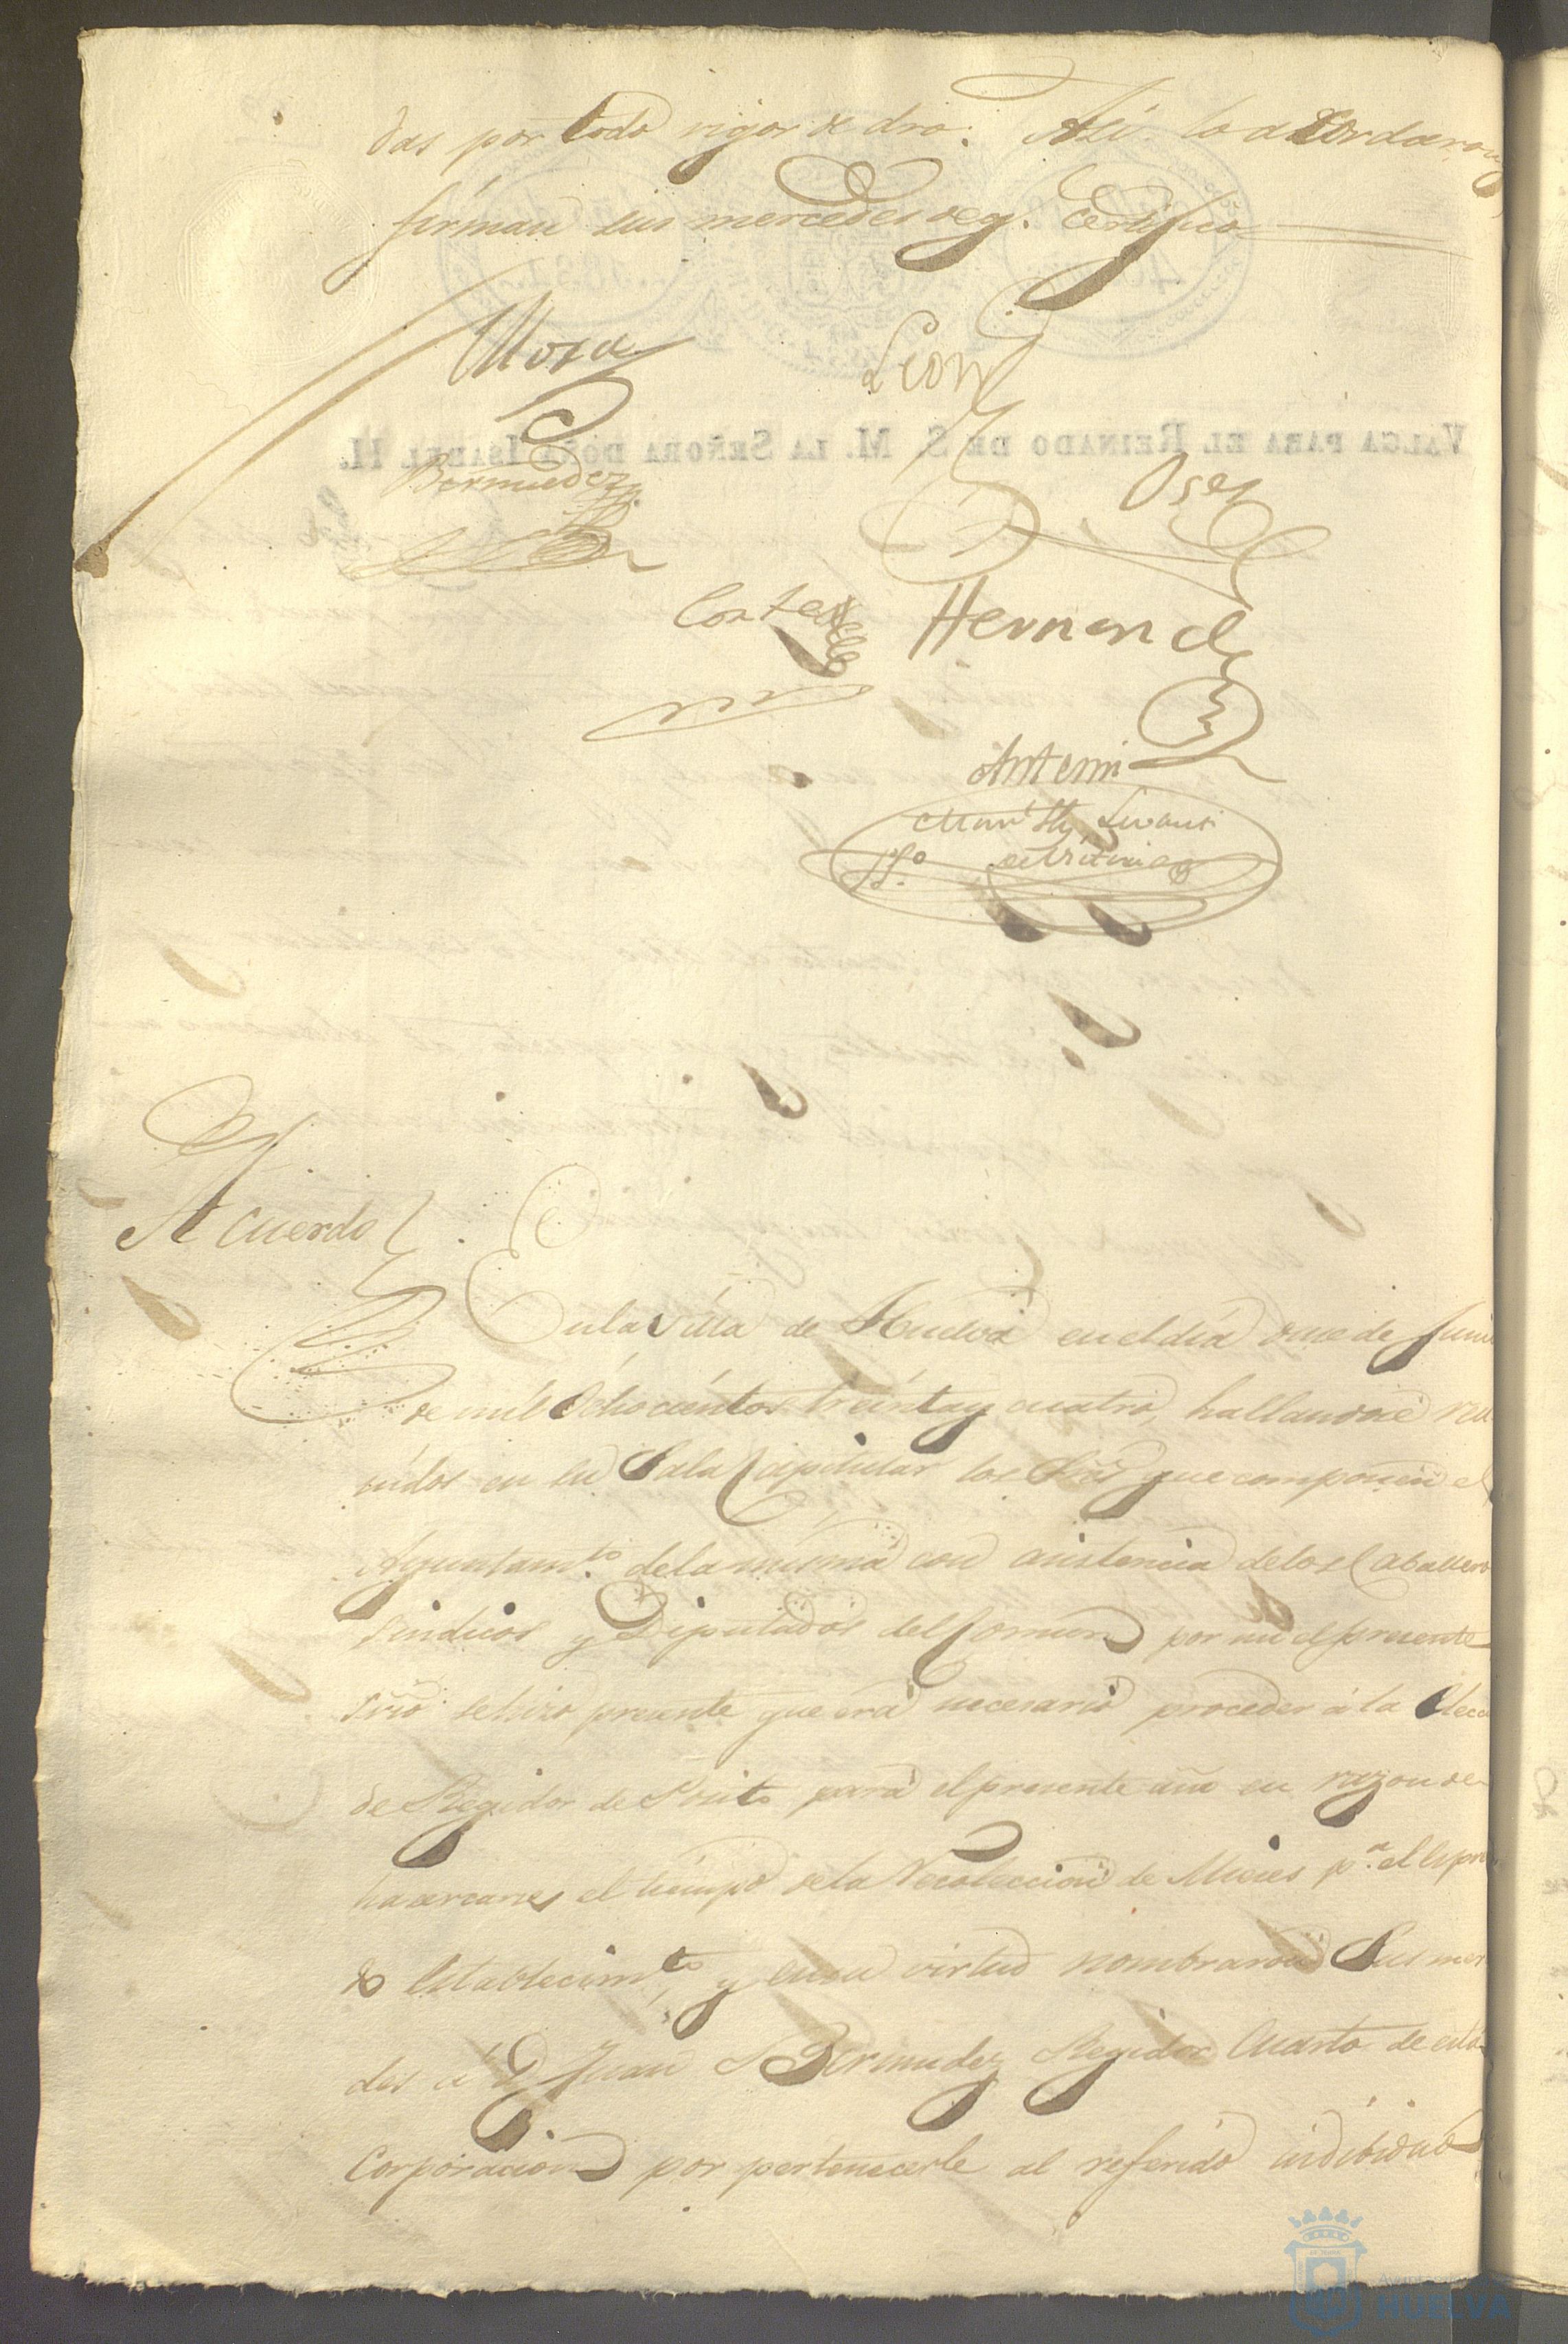 das por todo vigor de dro. Asi lo acordaron y
firman sus mercedes deq. Certifico
Mora
Leon
VALGA PARA EL REINADO DE S. M. LA SEÑORA DOÑA ISABEL II.
Bermudez
Cortes
Hernand
Antemi
Acuerdo
En la Villa de Huelva en el dia once de Juni
de mil Ochocientos treinta y cuatro, hallandose reu
nidos en su Sala Capitular los Sres que componen el
Ayuntamto. de la misma con asistencia de los Caballero
Sindicos y Diputados del Comun por mi el presente
Srio se hizo presente que era necesario proceder á la Elecc
de Regidor de Posito para el presente año en razon de
hacercarse el tiempo de la Recoleccion de Mieses pa. el Expre
do Establecimto, y en su virtud nombraron Sus merce
des á D. Juan Bermudez Regidor Cuarto de esta
Corporacion por pertenecerle al referido indibiduo
HUELVA